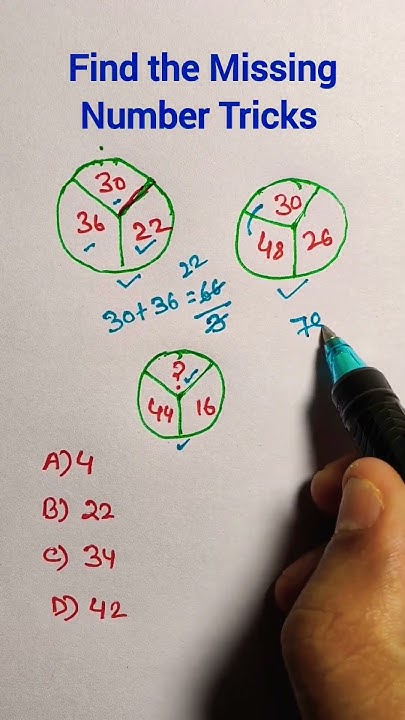 Find the Missing
Number Tricks
30
36 22
30
48 26
22
30+36 = 66
3
78
?
44 16
A) 4
B) 22
C) 34
D) 42